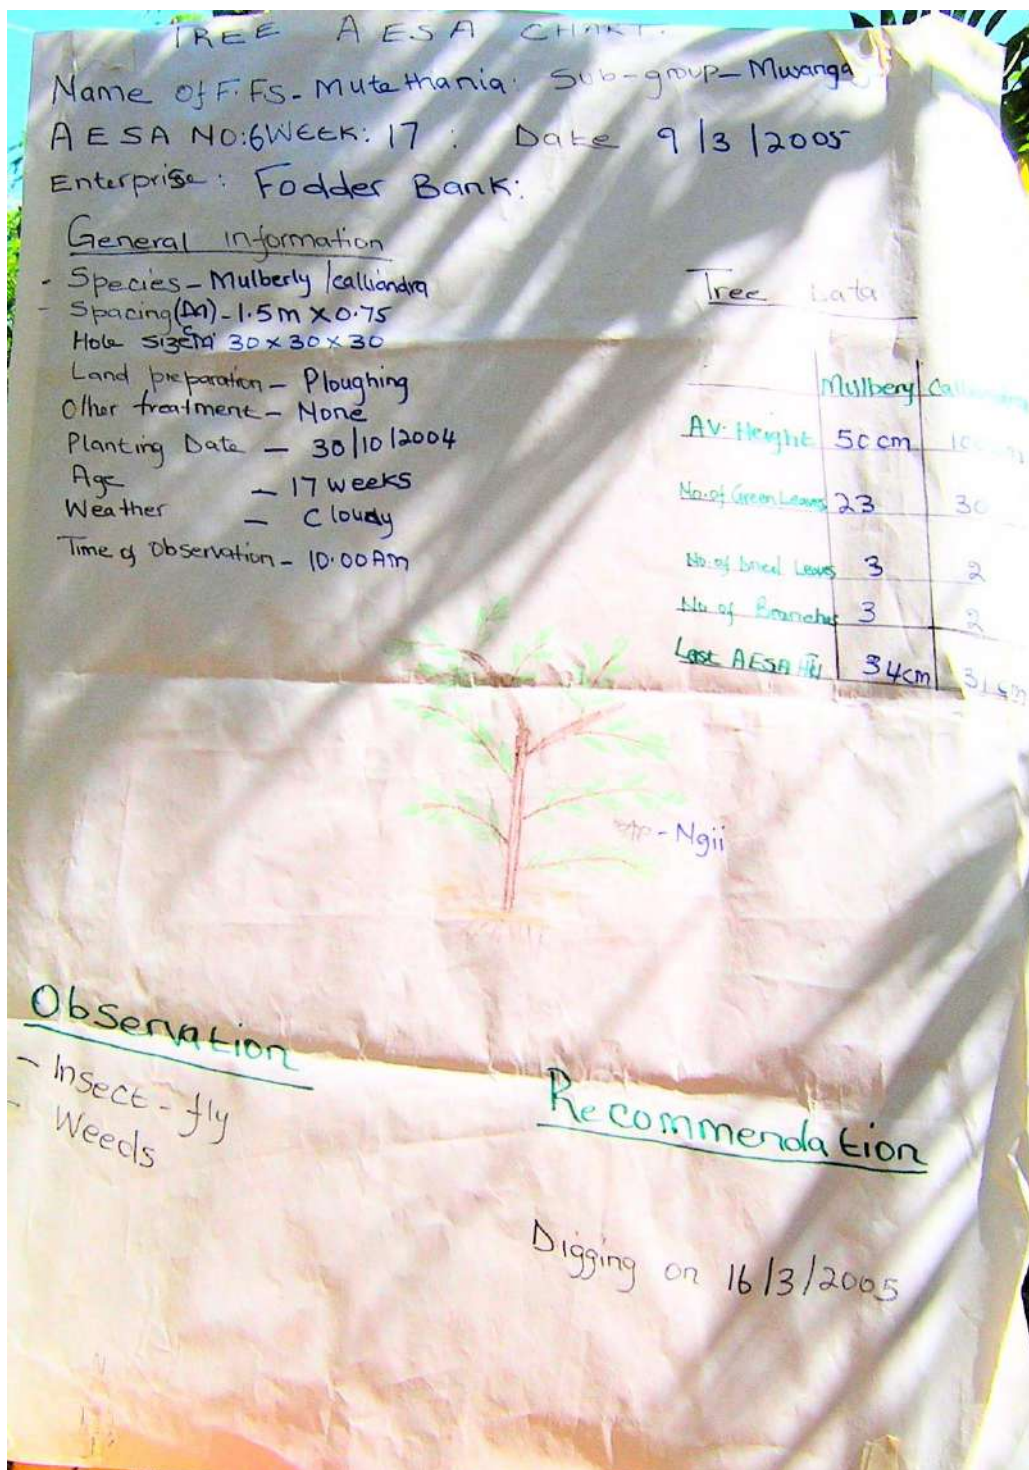 TREE AESA CHART.
Name of F.FS - Mutethania: Sub-group - Mwanga
AESA NO:6 WEEK: 17 : Date 9/3/2005
Enterprise: Fodder Bank:
General information
- Species - Mulberly /calliandra
- Spacing(M) - 1.5m x 0.75
Hole size cm 30 x 30 x 30
Land preparation - Ploughing
Other treatment - None
Planting Date - 30/10/2004
Age - 17 weeks
Weather - Cloudy
Time of Observation - 10.00Am
Tree Data
Mulbery Calliandra
AV. Height 50cm
No. of Green Leaves 23 30
No. of Dried Leaves 3 2
No of Branches 3 2
Last AESA Ht 34cm 31cm
- Ngii
Observation
- Insect - fly
- Weeds
Recommendation
Digging on 16/3/2005